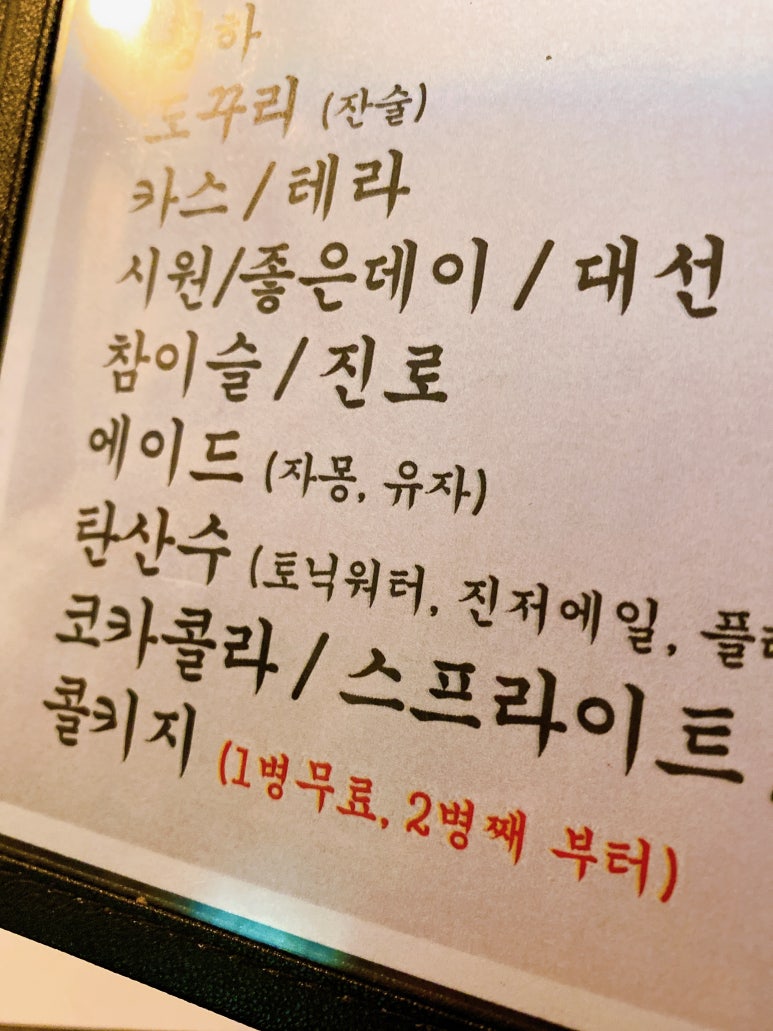 하
도꾸리 (잔술)
카스/테라
시원/좋은데이/대선
참이슬/진로
에이드 (자몽, 유자)
탄산수 (토닉워터, 진저에일,
코카콜라/스프라이트
콜키지 (1병무료, 2병째 부터)